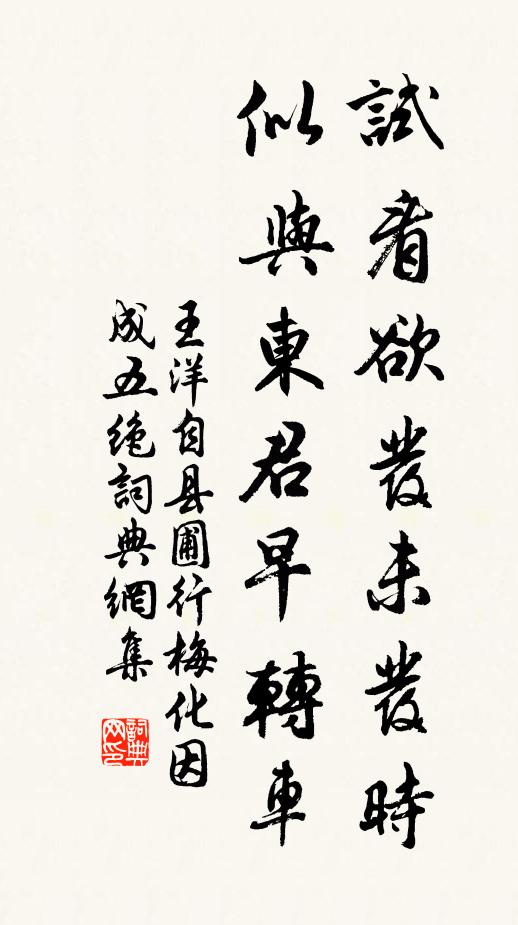 試看欲發未發時
似與東君早轉車
王洋自县圃行梅化因
成五絶詞典網集
詞典網印